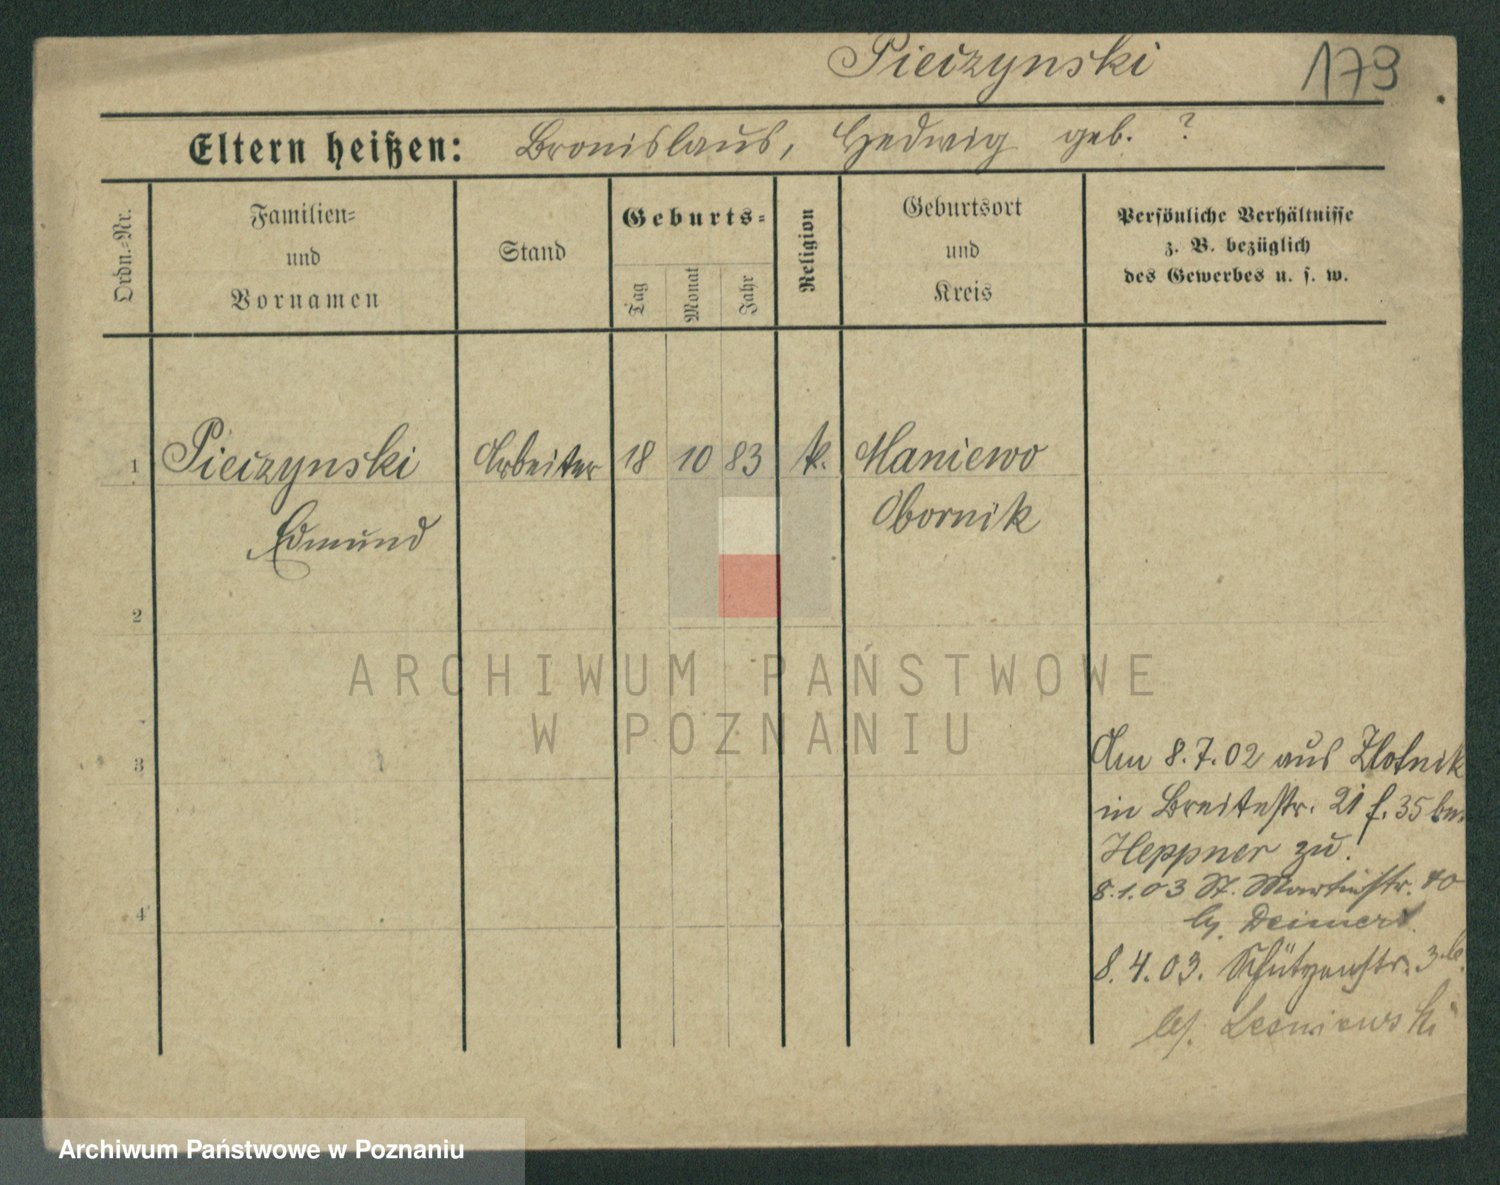 Pieczynski 173
Eltern heißen: Bronislaus, Hedwig geb. ?
Ordn.-Nr.
Familien-
und
Vornamen
Stand
Geburts-
Tag
Monat
Jahr
Religion
Geburtsort
und
Kreis
Persönliche Verhältnisse
z. B. bezüglich
des Gewerbes u. s. w.
1 Pieczynski Arbeiter 18 10 83 k. Maniewo
Edmund Obornik
2
3
4
ARCHIWUM PAŃSTWOWE
W POZNANIU
Am 8.7.02 aus Zlotnik
in Breitestr. 21 f. 35 bei
Heppner zu.
8.1.03 St. Martinstr. 40
bei Deimert
8.4.03. Schützenstr. 3
bei Lesniewski
Archiwum Państwowe w Poznaniu